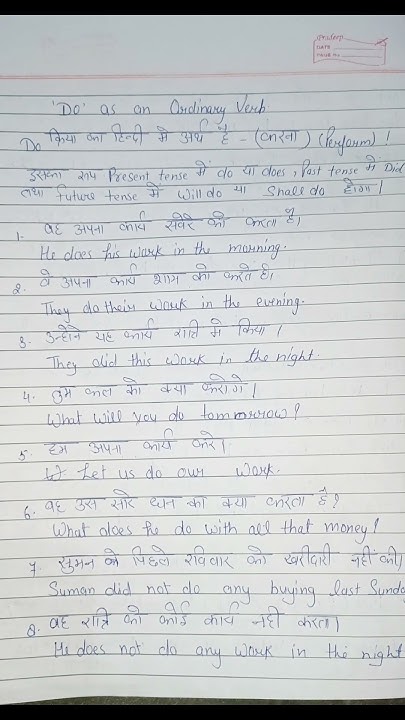 Pradeep
DATE
PAGE No.
'Do' as an Ordinary Verb.
Do क्रिया का हिन्दी में अर्थ है - (करना) (Perform) !
इसका रूप Present tense में do या does, Past tense में Did
तथा future tense में Will do या Shall do होगा।
1. वह अपना कार्य सवेरे को करता है,
He does his work in the morning.
2. वे अपना कार्य शाम को करते है,
They do their work in the evening.
3. उन्होने यह कार्य रात्रि मे किया।
They did this work in the night.
4. तुम कल को क्या करोगे।
What will you do tommorrow?
5. हम अपना कार्य करे।
Let us do our work.
6. वह उस सारे धन का क्या करता है?
What does he do with all that money!
7. सुमन ने पिछले रविवार को खरीदारी नहीं की,
Suman did not do any buying last Sunda
8. वह रात्रि को कोई कार्य नही करता।
He does not do any work in the night